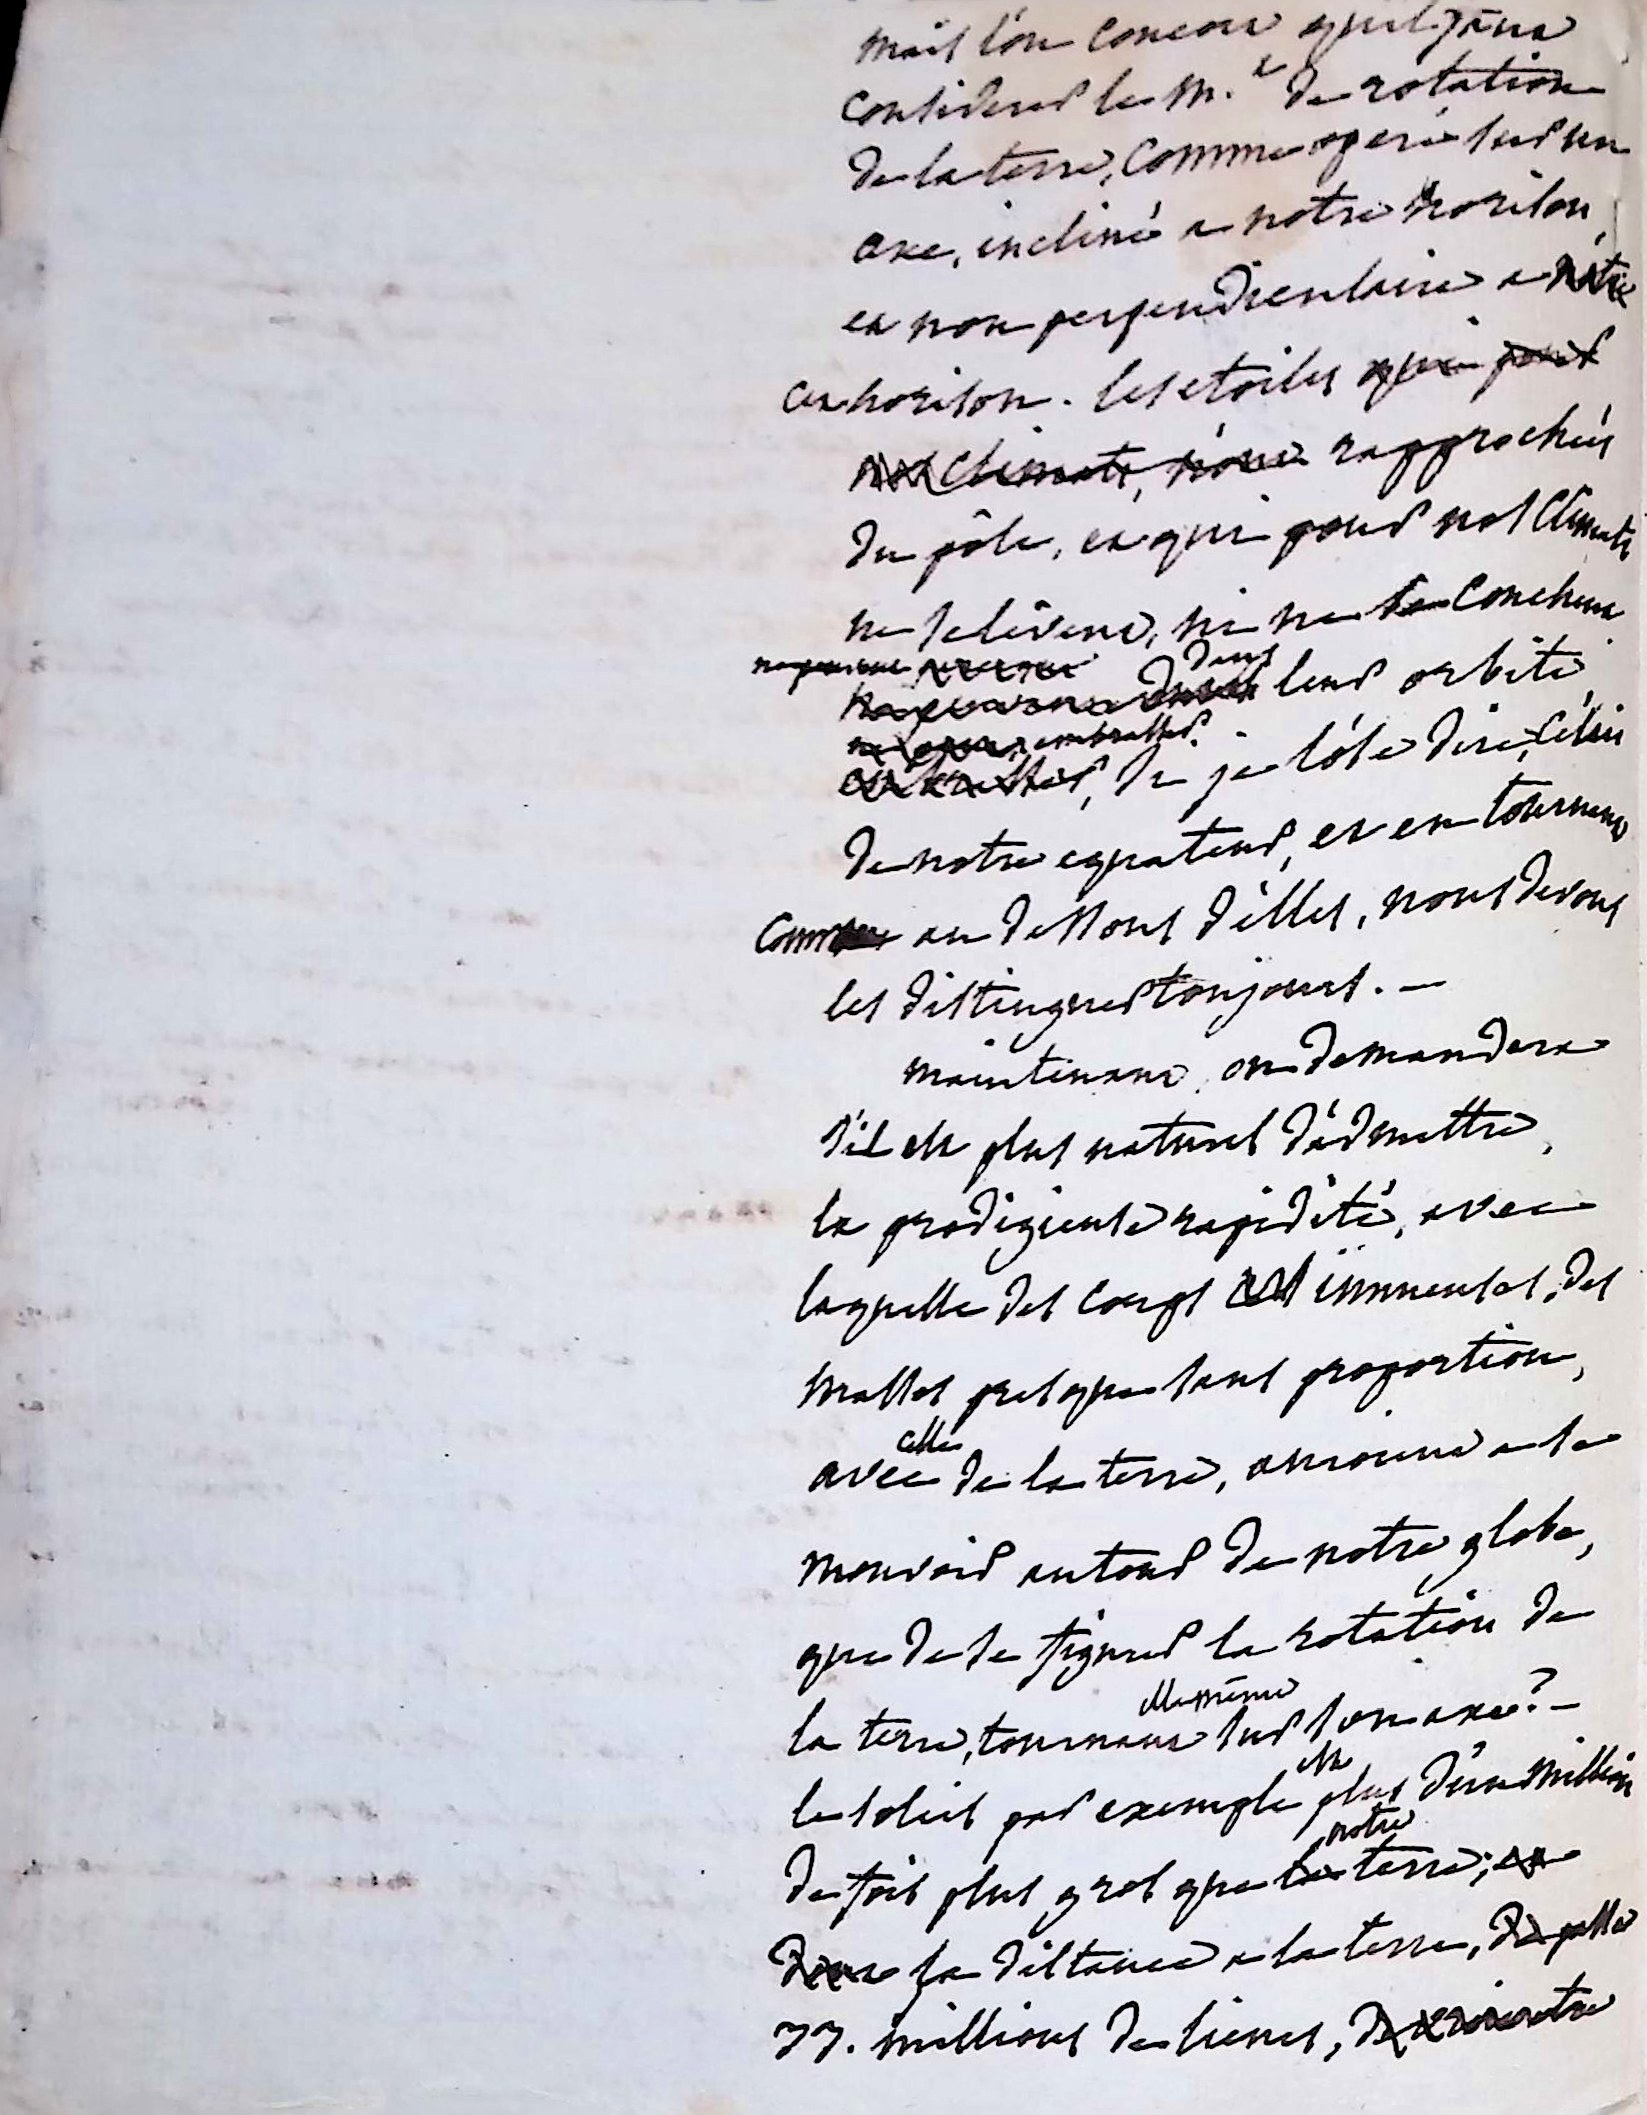 mais l'on concoit qu'il faut
considerer le m.t de rotation
de la terre, comme operé sur un
axe, incliné a notre horison,
et non perpendiculaire a notre
cet horison. les etoiles qui pour
nos climats, rapprochées
du pôle, et qui pour nos climats
ne se lèvent, ni ne se couchent
dans
leur orbite
embrasser
de je l'ose dire, celui
de notre equateur, et en tournant
comme au dessous d'elles, nous devons
les distinguer toujours. -
maintenant, on demandera
s'il est plus naturel d'admettre,
la prodigieuse rapidité, avec
laquelle des corps immenses, des
masses presque sans proportion,
celle
avec de la terre, auroient a se
mouvoir autour de notre globe,
que de se figurer la rotation de
elle même
la terre, tournant sur son axe? -
est
le soleil par exemple plus d'un million
notre
de fois plus gros que la terre; et
dont sa distance a la terre, dépasse
33. millions de lieues,